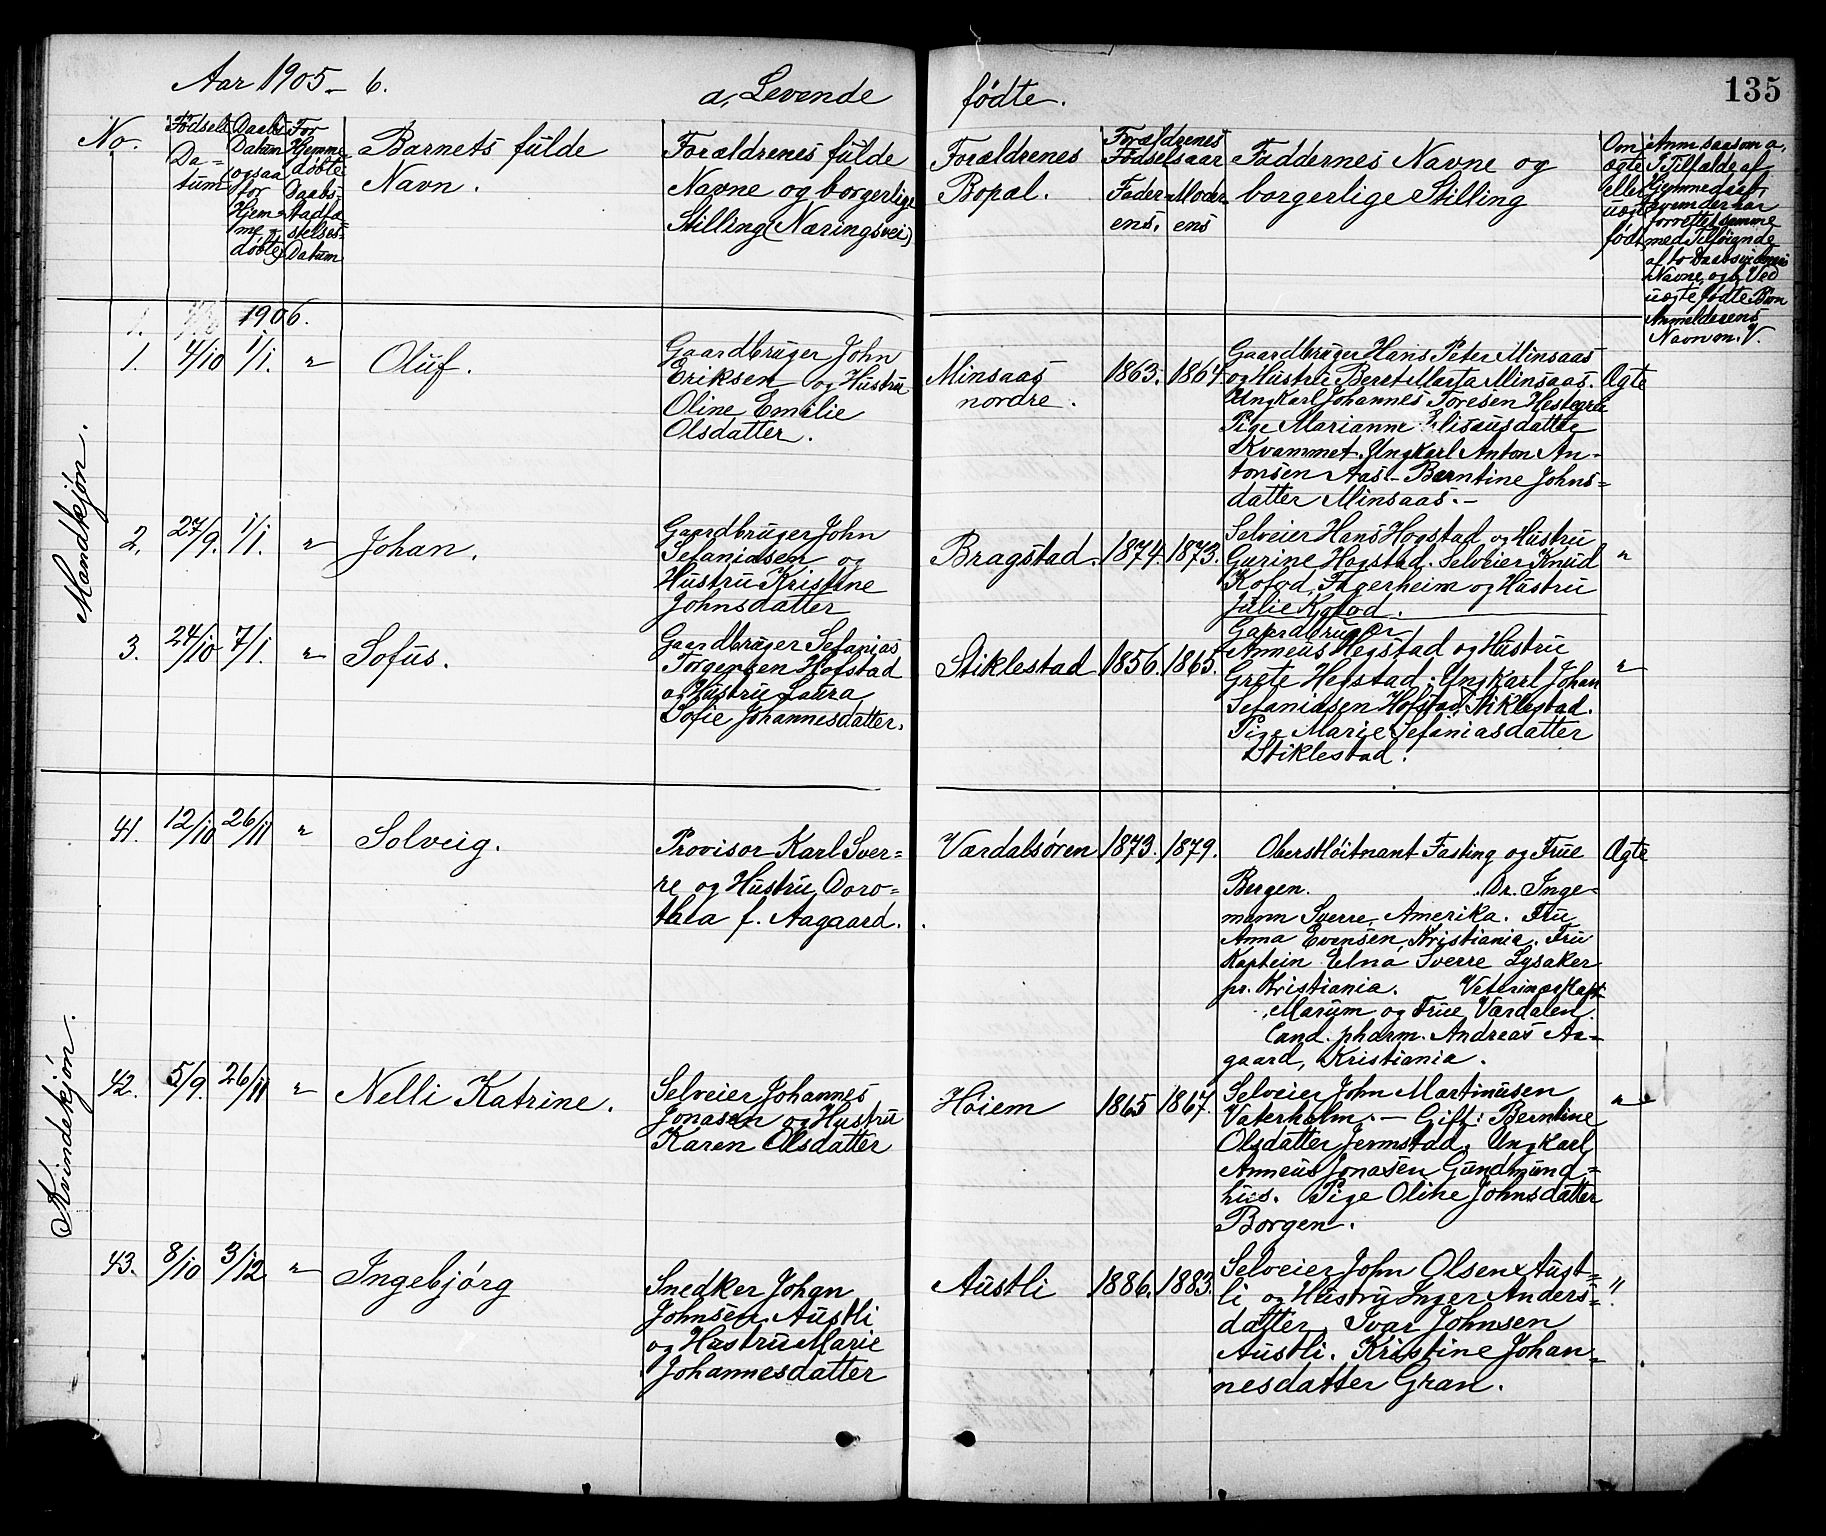 Aar 1905 - 6.
a, Levende fødte.
135
No.
Fødsels
Da-
tum
Daabs
Datum
ogsaa
for
Hjem-
me
døbte
For
Hjemme-
døbte
Daabs-
stadfæ-
stelses-
Datum
Barnets fulde
Navn.
Forældrenes fulde
Navne og borgerlige
Stilling (Næringsvei)
Forældrenes
Bopæl.
Forældrenes
Fødselsaar
Fader-
ens.
Moder-
ens
Faddernes Navne og
borgerlige Stilling
Om
ægte
eller
uægte
født
Anm. saasom a,
I Tilfælde af
Hjemmedaab,
hvem der har
forrettet samme
med Tilføiende
af to Daabsvidners
Navne, og b, Ved
uægte fødte Børn
Anmelderens
Navn m. V.
1906.
1.
Mandkjøn.
1. 4/10 1/1. " Oluf.
Gaardbruger John
Eriksen og Hustru
Oline Emilie
Olsdatter.
Minsaas
nordre.
1863. 1864.
Gaardbruger Hans Peter Minsaas
og Hustru Beret Marta Minsaas.
Ungkarl Johannes Toresen Hestegrei
Pige Marianne Eliseusdatter
Kvammet. Ungkarl Anton An-
tonsen Aas - Berntine Johns-
datter Minsaas. -
Ægte
2. 27/9. 1/1. " Johan.
Gaardbruger John
Sefaniasen og
Hustru Kristine
Johnsdatter
Bragstad. 1874. 1873.
Selveier Hans Hogstad og Hustru
Gurine Hogstad. Selveier Knud
Kofod, Fagerheim og Hustru
Julie Kofod.
"
3. 24/10 7/1. " Sofus.
Gaardbruger Sefanias
Torgersen Hofstad
og Hustru Laura
Sofie Johannesdatter.
Stiklestad 1856. 1865.
Gaardbruger
Anneus Hegstad og Hustru
Grete Hegstad; Ungkarl Johan
Sefaniasen Hofstad, Stiklestad.
Pige Marie Sefaniasdatter
Stiklestad.
"
Kvindekjøn.
41. 12/10 26/11 " Solveig.
Provisor Karl Sver-
re og Hustru Doro-
thea f. Aagaard.
Værdalsøren 1873. 1879.
Oberstløitnant Fasting og Frue
Bergen. Dr. Inge-
mann Sverre, Amerika. Fru
Anna Evensen, Kristiania. Fru
Kaptein Elna Sverre Lysaker
pr. Kristiania. Veterinær Kapt.
Marum og Frue, Værdalen.
Cand. pharm. Andreas Aa-
gaard, Kristiania.
Ægte
42. 5/9. 26/11 " Nelli Katrine.
Selveier Johannes
Jonasen og Hustru
Karen Olsdatter
Høiem 1865 1867.
Selveier John Martinusen
Vaterholm. - Gift: Berntine
Olsdatter Jermstad, Ungkarl
Anneus Jonasen Gundmund-
hus. Pige Oline Johnsdatter
Borgen.
"
43. 8/10 3/12 " Ingebjørg
Snedker Johan
Johnsen Austli
og Hustru Marie
Johannesdatter
Austli 1886. 1883.
Selveier John Olsen Aust-
li og Hustru Inger Anders-
datter, Ivar Johnsen
Austli. Kristine Johan-
nesdatter Gran.
"